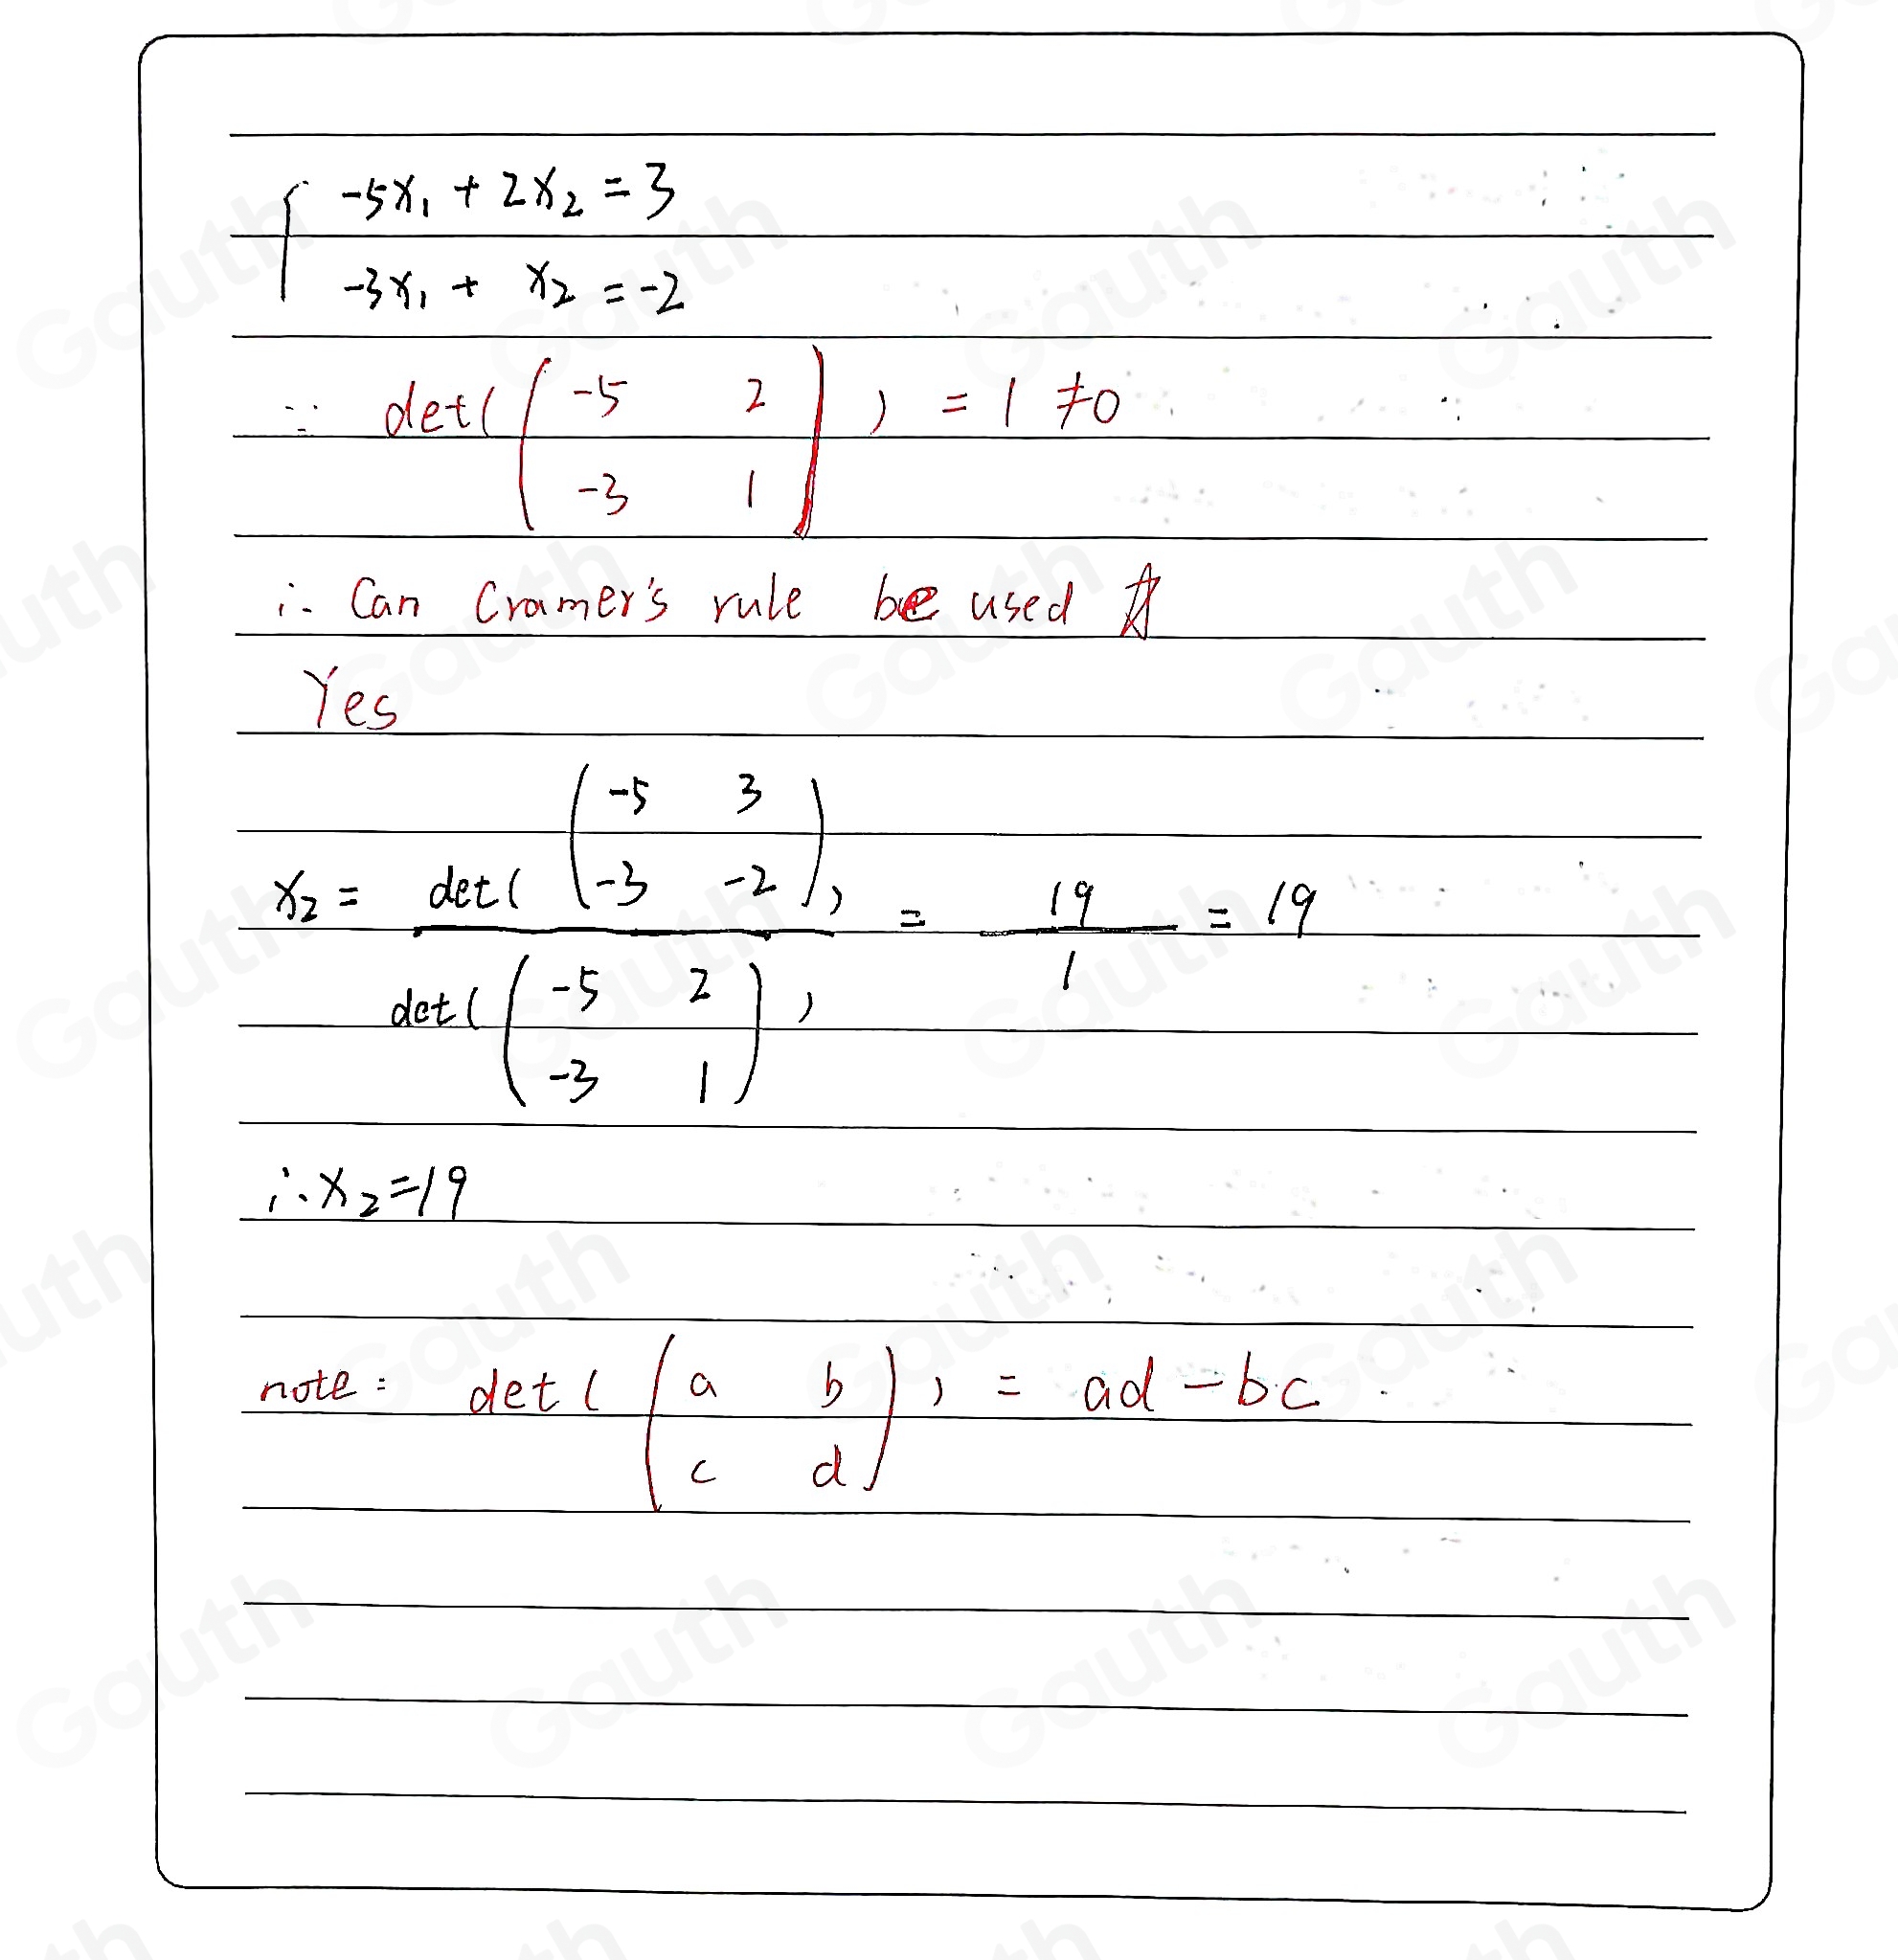 -5x₁ + 2x₂ = 3
-3x₁ + x₂ = -2
∵ det( ( -5 2
-3 1 ) ) = 1 ≠ 0
∴ Can Cramer's rule be used
Yes
x₂ = det( ( -5 3
-3 -2 ) ) / det( ( -5 2
-3 1 ) ) = 19 / 1 = 19
∴ x₂ = 19
note: det ( ( a b
c d ) ) = ad - bc.
Gauth